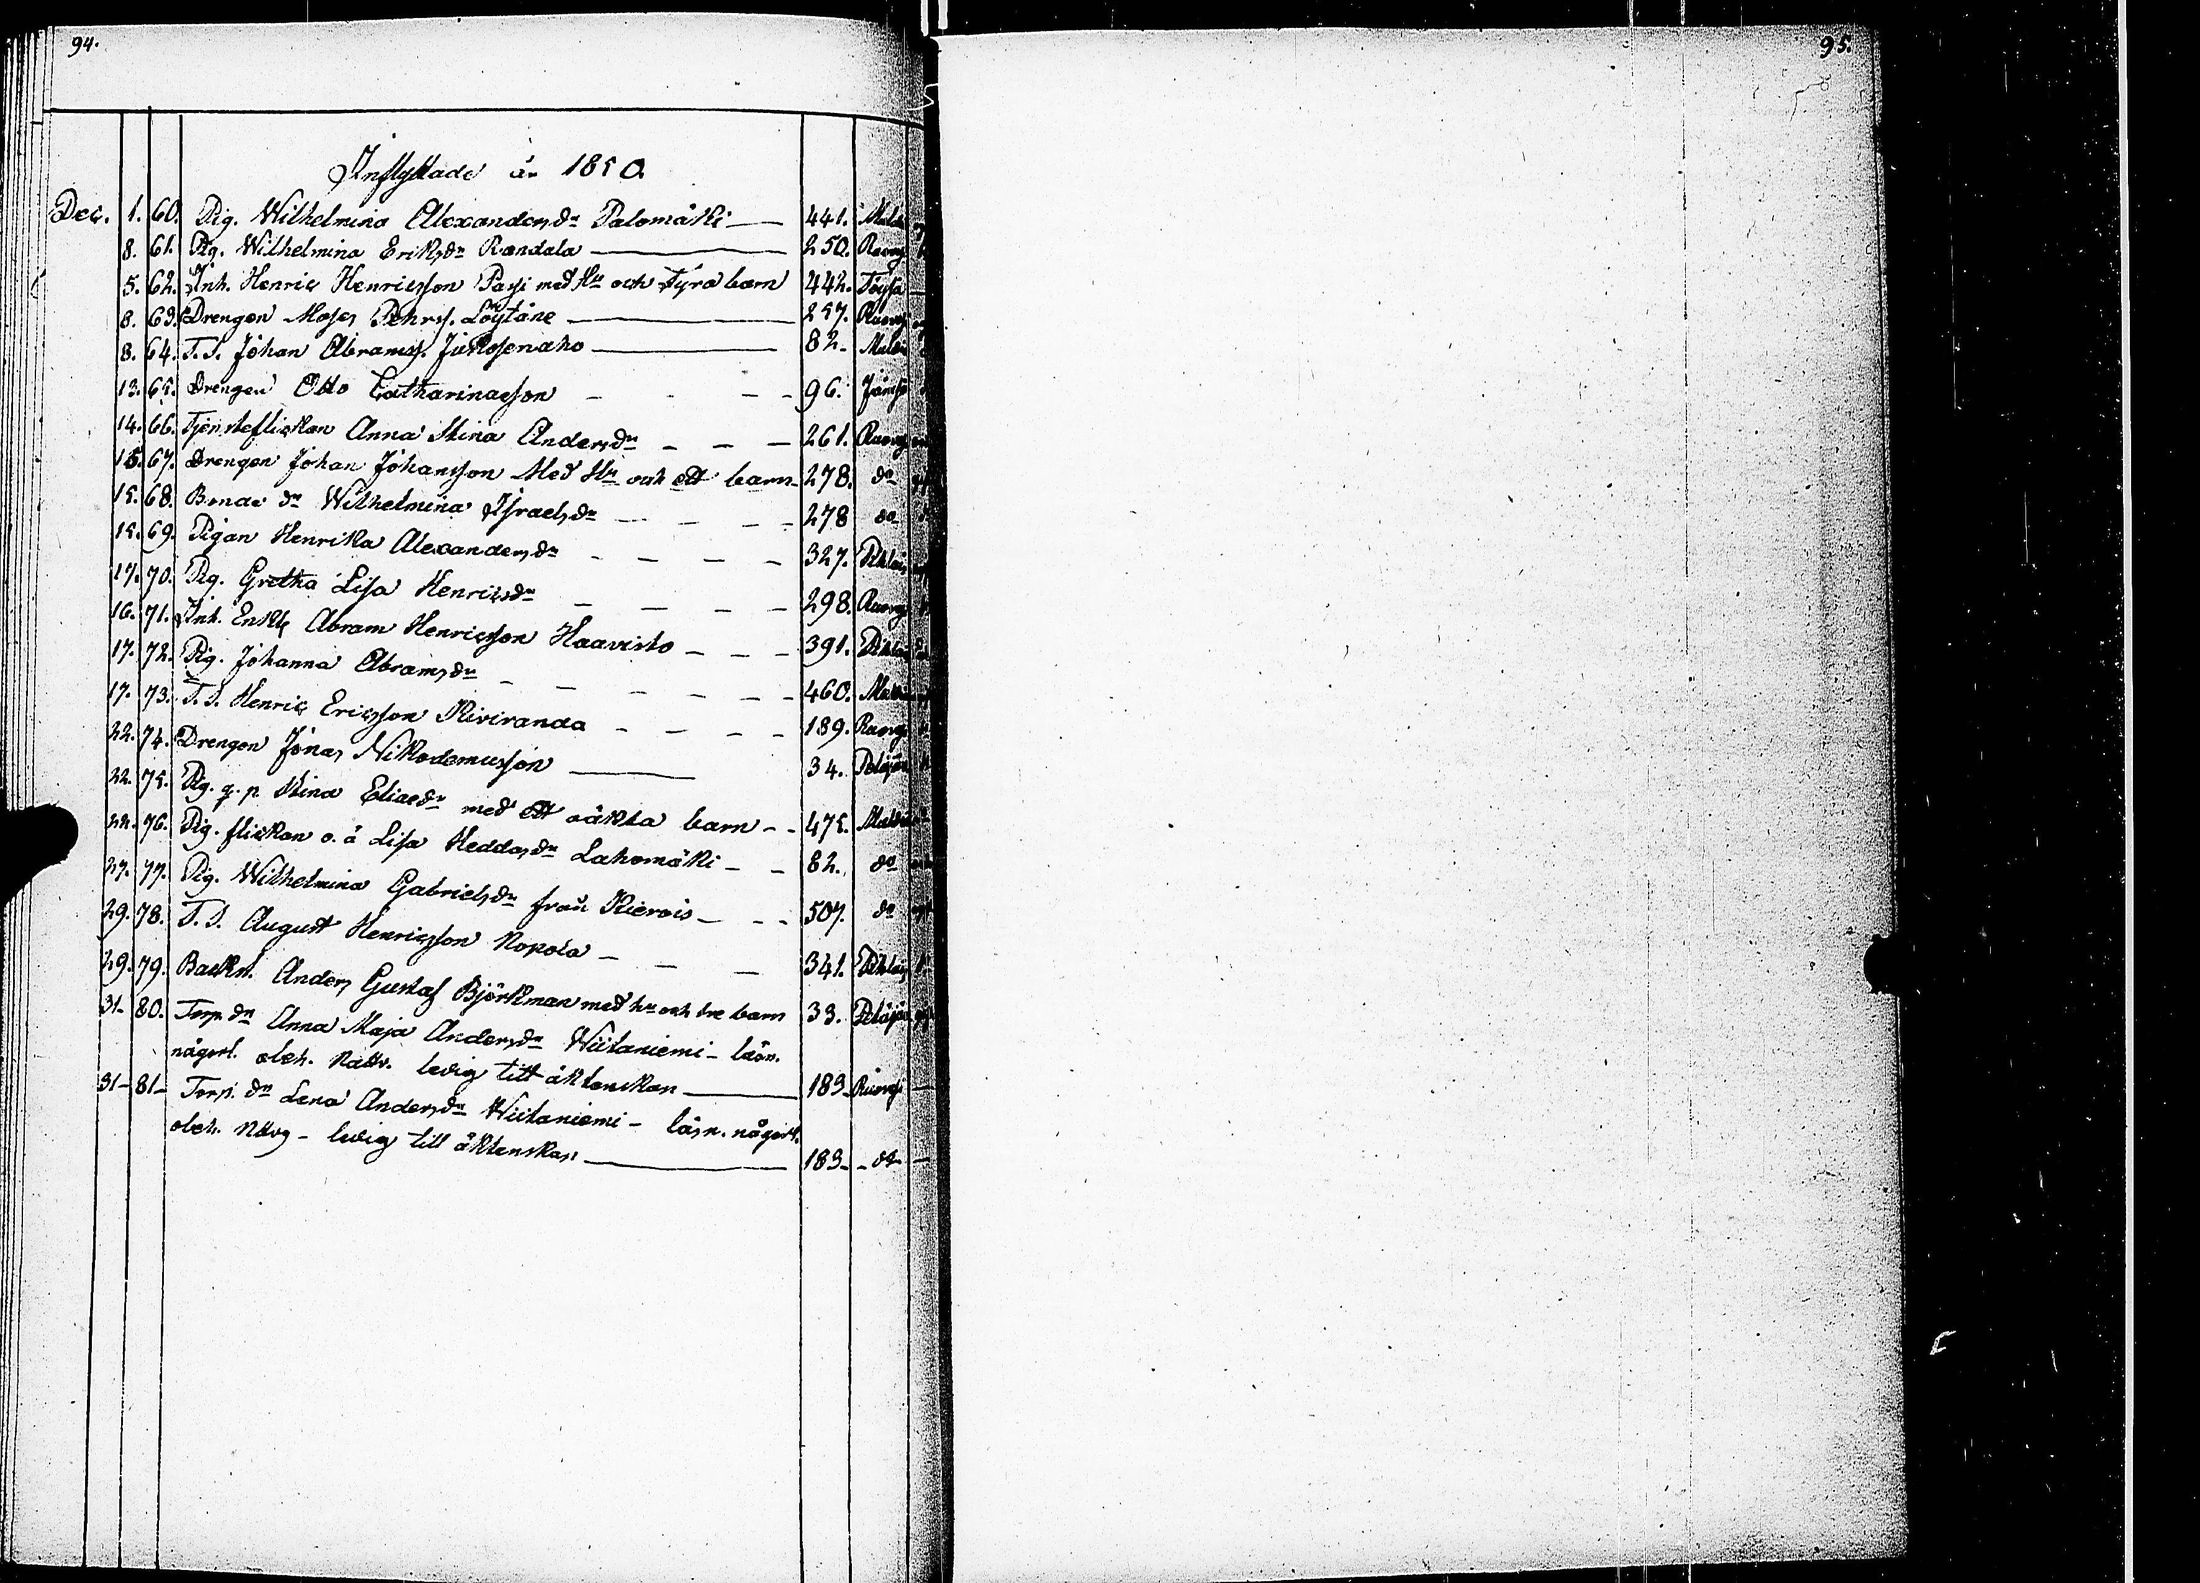 94.
95.
Inflyttade år 1850.
Dec. 1. 60. Pig. Wilhelmina Alexandersdr Palomäki 441.
8. 61. Pig. Wilhelmina Eriksdr Randala 250. Ruov.
5. 62. Inh. Henric Henricsson Passi med Hu och Fyra barn 442. Töysä
8. 63. Drengen Moses Pehrs. Löytäne 257. Ruov
8. 64. T.S. Johan Abramss. 82.
13. 65. Drengen Otto Catharinaesson 96. Jämsä
14. 66. Tjensteflickan Anna Stina Andersdr 261. Ruov
15. 67. Drengen Johan Johansson Med Hu och ett barn 278. do
15. 68. Bonde dr Wilhelmina Israelsdr 278 do
15. 69. Pigan Henrika Alexandersdr 327.
17. 70. Pig. Gretha Lisa Henricsdr 298. Ruov
16. 71. Inh. Enkl. Abram Henricsson Haavisto 391.
17. 72. Pig. Johanna Abramsdr 460.
17. 73. T.S. Henric Ericsson Kiviranda 189. Ruov
22. 74. Drengen Jonas Nikodemusson 34.
22. 75. Pig. q.p. Stina Eliaedr med ett oäkta barn 475.
22. 76. Pig. flickan o.ä Lisa Heddasdr Lahomäki 82. do
27. 77. Pig. Wilhelmina Gabrielsdr från 507. do
29. 78. T.S. August Henricsson Kopola 341.
29. 79. Backst. Anders Gustaf Björkman med hu och tre barn 33.
31. 80. Torp. dr Anna Maja Andersdr Wiitaniemi - läsn.
någorl. obeh. Nattv. ledig till äktenskap 183
31 - 81 - Torp. dr Lena Andersdr Wiitaniemi - läsn. någorl.
obeh. Nttvg - ledig till äktenskap 183 - do